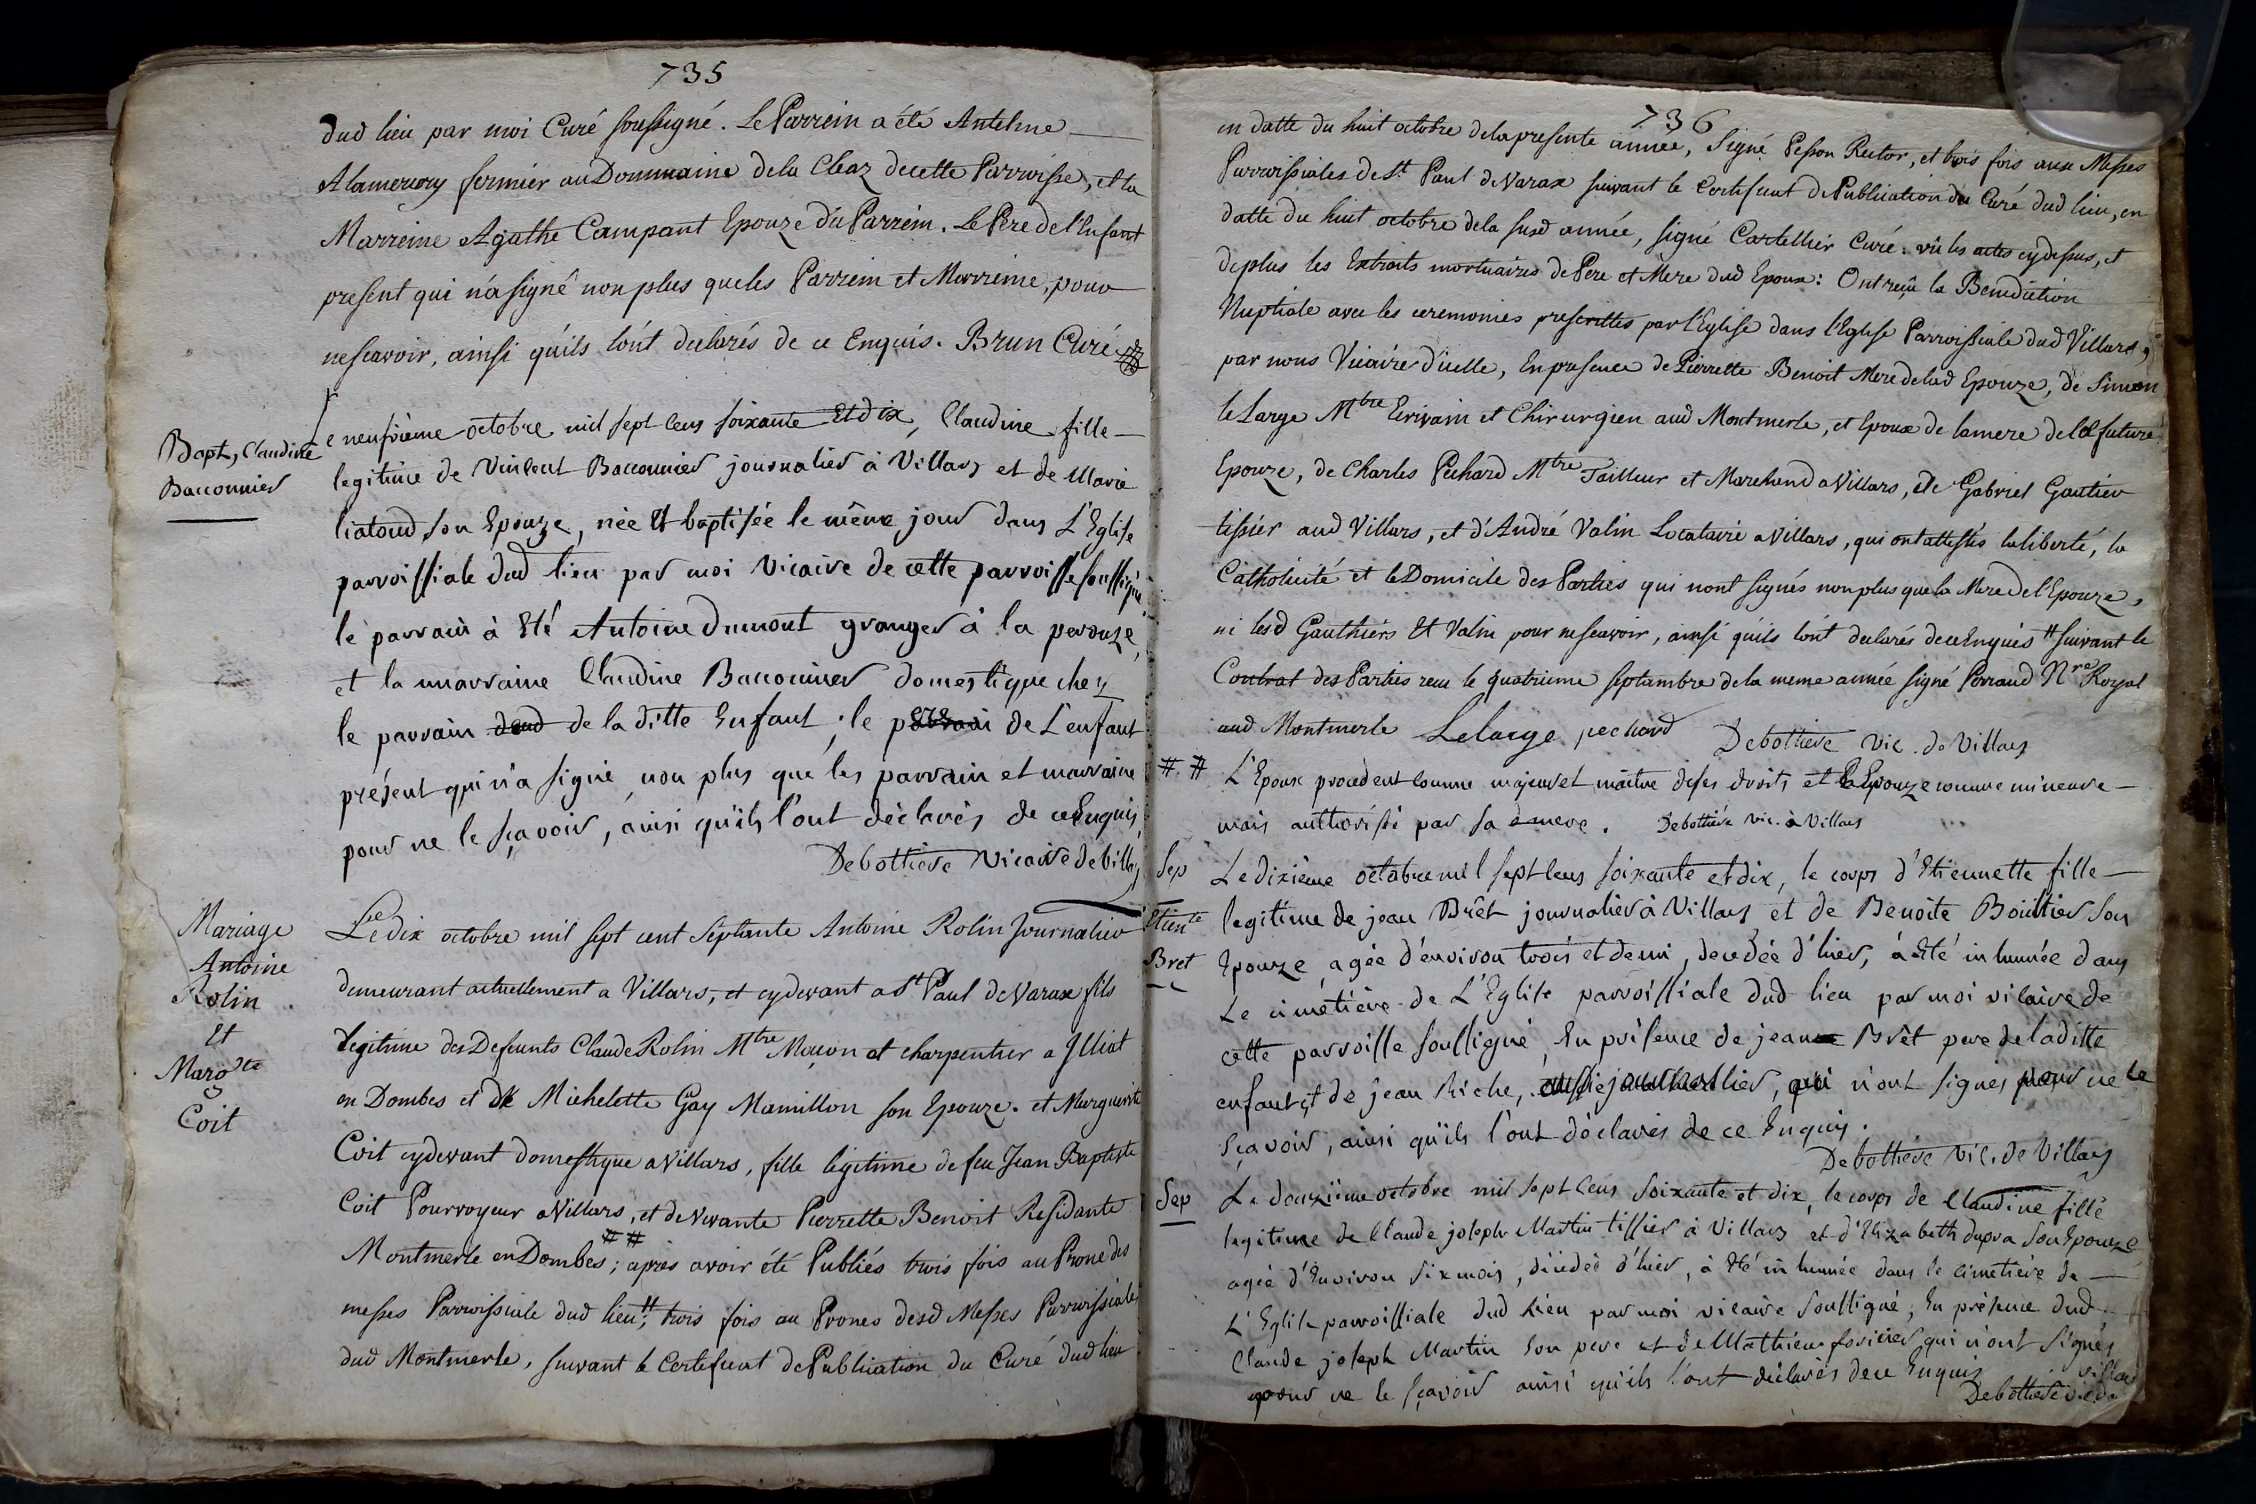 735
dud lieu par moi Curé soussigné. Le Parrein a été Antelme
Alamercery fermier au Dommaine dela Cleaz decette Parroisse, et la
Marreine Agathe Campant Epouze du Parrein. Le Pere de l'Enfant
present qui n'a signé non plus queles Parrein et Marreine, pour
nescavoir, ainsi qu'ils lónt declarés de ce Enquis. Brun Curé
Bapt, Claudine
Bacconnier
Le neufvième octobre mil sept cens soixante Et dix, Claudine fille
legitime de Vincent Bacconnier journalier à Villars et de Marie
liatoud son Epouze, née Et baptisée le même jour dans L'Eglise
parroissiale dud lieu par moi Vicaire de cette parroisse soussigné
le parrain à Eté Antoine Dumont granger à la perouze,
et la marraine Claudine Bacconnier domestique chez
le parrain dud de la ditte Enfant, le parrain de L'enfant
présent qui n'a signé, non plus que les parrain et marraine
pour ne le sçavoir, ainsi qu'ils l'ont déclarés de ce Enquis,
Debothiére Vicaire de Villars
Mariage
Antoine
Rolin
Et
Margte
Coit
Le dix octobre mil sept cent septante Antoine Rolin Journalier
demeurant actuellement a Villars, et cydevant a St Paul de Varax fils
legitime des Defeunts Claude Rolin Mtre Maçon et charpentier a Illiat
en Dombes et de Michelette Gay Mamillon son Epouze. et Marguerite
Coit cydevant domestique a Villars, fille legitime de feu Jean Baptiste
Coit Pourvoyeur a Villars, et de Vivante Pierrette Benoit Residante
Montmerle en Dombes ## ; après avoir été Publiés trois fois au Prone des
messes Parroissiale dud lieu #, trois fois au Prones desd Messes Parroissiales
dud Montmerle, suivant le Certificat de Publication du Curé dud lieu
736
en datte du huit octobre delapresente année, Signé Pesson Rector, et trois fois aux Messes
Parroissiales de St Paul de Varax suivant le Certificat de Publication du Curé dud lieu, en
datte du huit octobre dela susd année, signé Cartellier Curé: vû les actes cydessus, et
deplus les Extraits mortuaires de Pere et Mere dud Epoux: Ont reçu la Benediction
Nuptiale avec les ceremonies prescrittes par l'Eglise dans l'Eglise Parroissiale dud Villars,
par nous Vicaire d'icelle, En presence de Pierrette Benoit Mere delad Epouze, de Simon
le Large Mtre Ecrivain et Chirurgien aud Montmerle, et Epoux de lamere delad future
Epouze, de Charles Pechard Mtre Tailleur et Marchand a Villars, de Gabriel Gautier
tissier aud Villars, et d'André Valin Locataire a Villars, qui ont attestés la liberté, la
Catholicité et le Domicile des Parties qui nont signés non plus que la Mere de l'Epouze,
ni lesd Gauthiers Et Valin pour nescavoir, ainsi qu'ils lónt declarés dece Enquis # suivant le
Contrat des Parties recu le quatrieme septambre de la meme année signé Perraud Nre Royal
aud Montmerle Lelarge pechard Debothiére vic. de Villars
# # L'Epoux procedent comme majeur et maitre de ses droits et la Epouze comme mineure
mais authorisée par sa mere. Debothiére vic. à Villars
Sep
Etiente
Bret
Le dixième octobre mil sept cens soixante et dix, le corps d'Etiennette fille
legitime de jean Brêt journalier à Villars et de Benoite Boiltier son
Epouze, agée d'environ trois et demi, decedée d'hier, à Eté inhumée dans
Le cimetiére de L'Eglise parroissiale dud lieu par moi vicaire de
cette parroisse soussigné, En présence de jean Brêt pere de laditte
enfant, et de jean Riche, journallier, qui n'ont signés pour ne le
sçavoir, ainsi qu'ils l'ont déclarés de ce Enquis.
Debothiére vic. de Villars
Sep
Le douzième octobre mil sept cens soixante et dix, le corps de Claudine fille
legitime de Claude joseph Martin tissier à Villars et d'Elizabeth dupra son Epouze
agée d'Environ six mois, décédée d'hier, à Eté inhumée dans le cimetiére de
L'Eglise parroissiale dud lieu par moi vicaire soussigné, En présence dud
Claude joseph Martin son pere et de Mathieu qui n'ont signés
pour ne le sçavoir ainsi qu'ils l'ont déclarés dece Enquis
Debothiére vic. de Villars